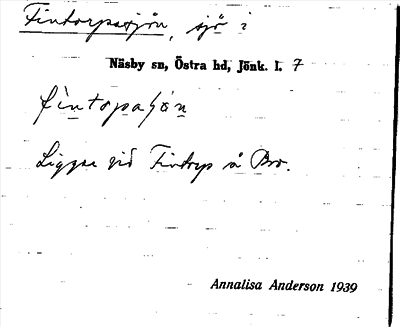 Fintorpasjön, sjö i
Näsby sn, Östra hd, Jönk. l. 7
fìntopaʃön
Ligger vid Fintorp å Bro.
Annalisa Anderson 1939